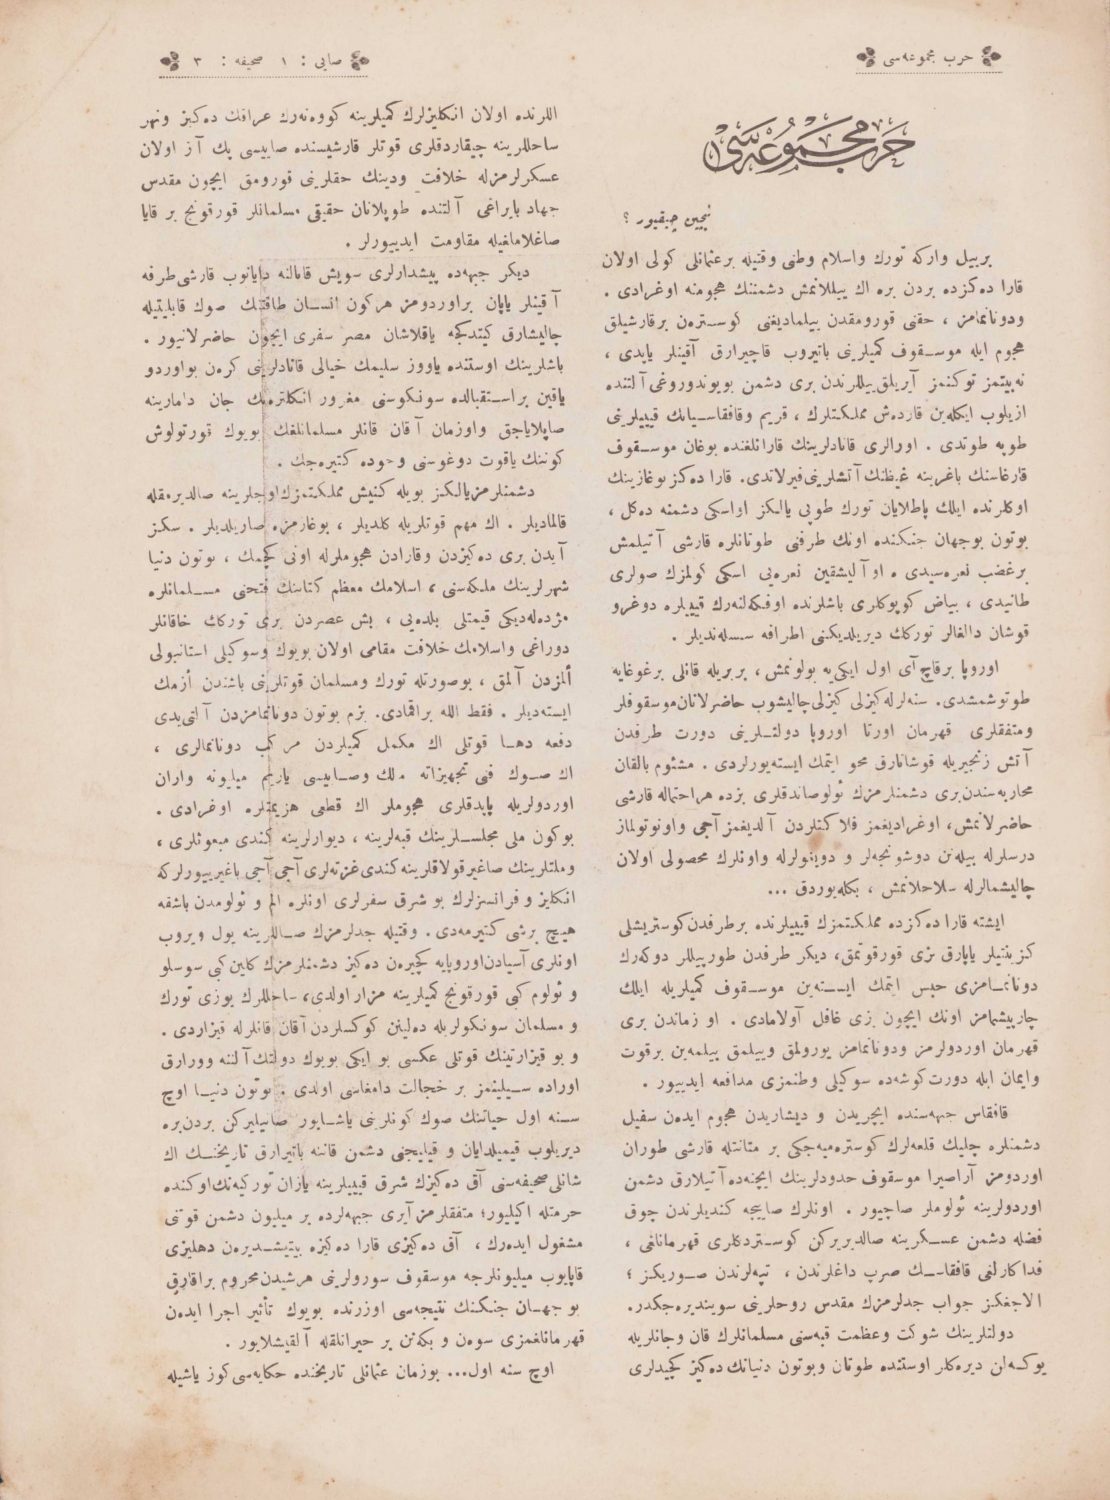 حرب مجموعه‌سی
صایی : ١ صحیفه : ٣
حرب مجموعه‌سی
نیچین چیقیور ؟
بر ییل وارکه تورك واسلام وطنی وقتیله بر عثمانلی کولی اولان
قارا ده‌کزده بردن بره اك ییللانمش دشمننك هجومنه اوغرادی .
ودونانمامز ، حقنی قورومقدن بیلمادیغی کوسترەن برقارشیلق
هجوم ایله موسقوف کمیلرینی باتیروب قاچیرارق آقینلر یاپدی ،
نه‌بیتمز توکنمز آیریلق ییللرندن بری دشمن بویوندوروغی آلتنده
ازیلوب ایکله‌ین قارده‌ش مملکتلرك ، قریم وقافقاسیانك قییلرینی
طوپه طوتدی . اورالری قانادلرینك قارانلغنده بوغان موسقوف
قارغاسنك باغرینه غیظنك آتشلرینی فیرلاتدی. قارا ده‌کز بوغازینك
اوکلرنده ایلك پاطلایان تورك طوپی یالکز او اسکی دشمنه ده‌کل ،
بوتون بوجهان جنکنده اونك طرفنی طوتانلره قارشی آتیلمش
بر غضب نعره‌سیدی . او آلیشقین نعره‌یی اسکی کولمزك صولری
طانیدی ، بیاض کوپوکلری باشلرنده اوفکه‌لنه‌رك قییلره دوغرو
قوشان دالغالر تورکك دیریلدیکنی اطرافه سسله‌ندیلر .
اوروپا برقاچ آی اول ایکی‌یه بولونمش، بربریله قانلی بر غوغایه
طوتوشمشدی. سنه‌لرله کیزلی کیزلی چالیشوب حاضرلانان موسقوفلر
ومتفقلری قهرمان اورتا اوروپا دولتلرینی دورت طرفدن
آتش زنجیریله قوشاتارق محو ایتمك ایسته‌یورلردی . مشئوم بالقان
محاربه‌سندن بری دشمنلرمزك ئولوصاندقلری بزده هر احتماله قارشی
حاضرلانمش، اوغرادیغمز فلاکتلردن آلدیغمز آجی واونوتولماز
درسلرله بیله‌نن دوشونجه‌لر و دویغولرله واونلرك محصولی اولان
چالیشمالرله سلاحلانمش ، بکله‌یوردق ...
ایشته قارا ده‌کزده مملکتمزك قییلرنده بر طرفدن کوستریشلی
کزینتیلر یاپارق بزی قورقوتمق، دیکر طرفدن طورپیللر دوکه‌رك
دونانمامزی حبس ایتمك ایسته‌ین موسقوف کمیلریله ایلك
چارپیشمامز اونك ایچون بزی غافل آولامادی . او زماندن بری
قهرمان اوردولرمز ودونانمامز یورولمق وییلمق بیلمه‌ین برقوت
وایمان ایله دورت کوشه‌ده سوکیلی وطنمزی مدافعه ایدییور .
قافقاس جبهه‌سنده ایچریدن و دیشاریدن هجوم ایده‌ن سفیل
دشمنلره چلیك قلعه‌لرك کوستره‌میه‌جکی بر متانتله قارشی طوران
اوردومز آراصیرا موسقوف حدودلرینك ایچنه‌ده آتیلارق دشمن
اوردولرینه ئولوملر صاچیور . اونلرك صاییجه کندیلرندن چوق
فضله دشمن عسکرینه صالدیریرکن کوستردکلری قهرمانلغی ،
فداکارلغی قافقاسك صرپ داغلرندن ، تپه‌لرندن صوریکز ؛
الاجغکز جواب جدلرمزك مقدس روحلرینی سویندیره‌جکدر.
دولتلرینك شوکت وعظمت قبه‌سنی مسلمانلرك قان وجانلریله
یوکسه‌لن دیره‌کلر اوستنده طوتان وبوتون دنیانك ده‌کیز کچیدلری
اللرنده اولان انکلیزلرك کمیلرینه کووه‌نه‌رك عراقك ده‌کیز ونهر
ساحللرینه چیقاردقلری قوتلر قارشیسنده صاییسی پك آز اولان
عسکرلرمزله خلافت ودینك حقلرینی قورومق ایچون مقدس
جهاد بایراغی آلتنده طوپلانان حقیقی مسلمانلر قورقونج بر قایا
صاغلاملغیله مقاومت ایدییورلر .
دیکر جبهه‌ده پیشدارلری سویش قانالنه دایانوب قارشی طرفه
آقینلر یاپان بر اوردومز هرکون انسان طاقتنك صوك قابلیتیله
چالیشارق کیتدکجه یاقلاشان مصر سفری ایچون حاضرلانیور .
باشلرینك اوستنده یاووز سلیمك خیالی قانادلرینی کرەن بو اوردو
یاقین بر استقبالده سونکوسنی مغرور انکلتره‌نك جان دامارینه
صاپلایاجق واوزمان آقان قانلر مسلمانلغك بویوك قورتولوش
کوننك یاقوت دوغوسنی وجوده کتیره‌جك .
دشمنلرمز یالکز بویله کنیش مملکتمزك اوجلرینه صالدیرمقله
قالمادیلر . اك مهم قوتلریله کلدیلر ، بوغازمزه صاریلدیلر . سکز
آیدن بری ده‌کیزدن وقارادن هجوملرله اونی کچمك ، بوتون دنیا
شهرلرینك ملکه‌سنی ، اسلامك معظم کتابنك فتحنی مسلمانلره
مژده‌له‌دیکی قیمتلی بلده‌یی ، بش عصردن بری تورکك خاقانلر
دوراغی واسلامك خلافت مقامی اولان بویوك وسوکیلی استانبولی
ألمزدن آلمق ، بوصورتله تورك ومسلمان قوتلرینی باشندن أزمك
ایسته‌دیلر . فقط الله براقمادی. بزم بوتون دونانمامزدن آلتی‌یدی
دفعه دها قوتلی اك مکمل کمیلردن مرکب دونانمالری ،
اك صوك فنی تجهیزاته مالك وصاییسی یاریم میلیونه واران
اوردولریله یاپدقلری هجوملر اك قطعی هزیمتلره اوغرادی .
بوکون ملی مجلسلرینك قبه‌لرینه ، دیوارلرینه کندی مبعوثلری ،
وملتلرینك صاغیر قولاقلرینه کندی غزته‌لری آجی آجی باغیرییورلرکه
انکلیز و فرانسزلرك بو شرق سفرلری اونلره الم و ئولومدن باشقه
هیچ برشی کتیرمه‌دی . وقتیله جدلرمزك صاللرینه یول ویروب
اونلری آسیادن اوروپایه کچیره‌ن ده‌کیز دشمنلرمزك کلین کبی سوسلو
و ئولوم کبی قورقونج کمیلرینه مزار اولدی، ساحللرك یوزی تورك
و مسلمان سونکولریله ده‌لینن کوکسلردن آقان قانلرله قیزاردی .
و بو قیزارتینك قوتلی عکسی بو ایکی بویوك دولتك آلننه وورارق
اوراده سیلینمز بر خجالت دامغاسی اولدی . بوتون دنیا اوچ
سنه اول حیاتنك صوك کونلرینی یاشایور صانیلیرکن بردن بره
دیریلوب قیمیلدایان و قیلیجنی دشمن قاننه باتیرارق تاریخنك اك
شانلی صحیفه‌سنی آق ده‌کیزك شرق قییلرینه یازان تورکیه‌نك اوکنده
حرمتله اکیلیور؛ متفقلرمز آیری جبهه‌لرده بر میلیون دشمن قوتنی
مشغول ایده‌رك ، آق ده‌کیزی قارا ده‌کیزه بیتیشدیره‌ن دهلیزی
قاپایوب میلیونلرجه موسقوف سورولرینی هرشیدن محروم براقارق
بو جهان جنکنك نتیجه‌سی اوزرنده بویوك تأثیر اجرا ایده‌ن
قهرمانلغمزی سوه‌ن و بکه‌نن بر حیرانلقله آلقیشلایور .
اوچ سنه اول... بوزمان عثمانلی تاریخنده حکایه‌سی کوز یاشیله